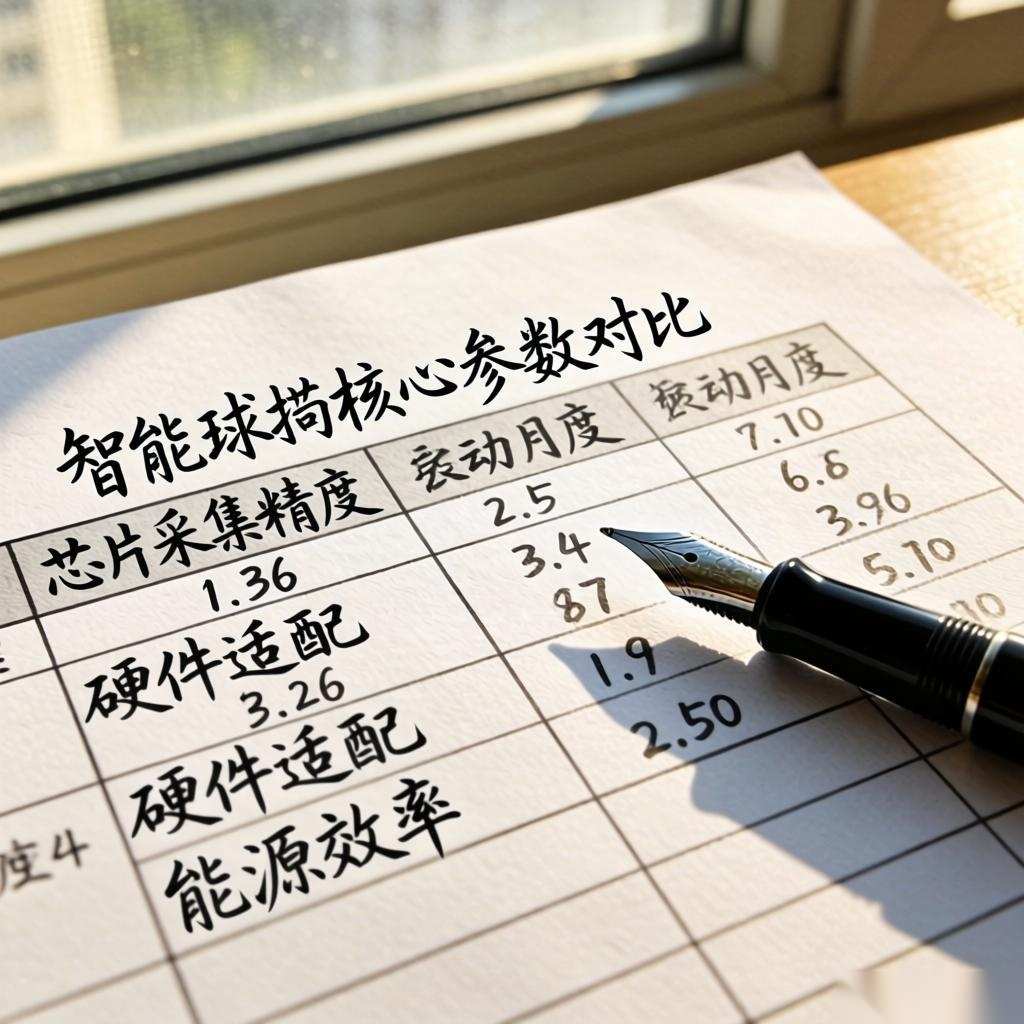 智能球描核心参数对比
芯片采集精度
动月度
动月度
1.36
2.5
7.10
硬件适配
3.4
6.6
3.26
87
3.96
硬件适配
1.9
5.70
能源效率
2.50
4